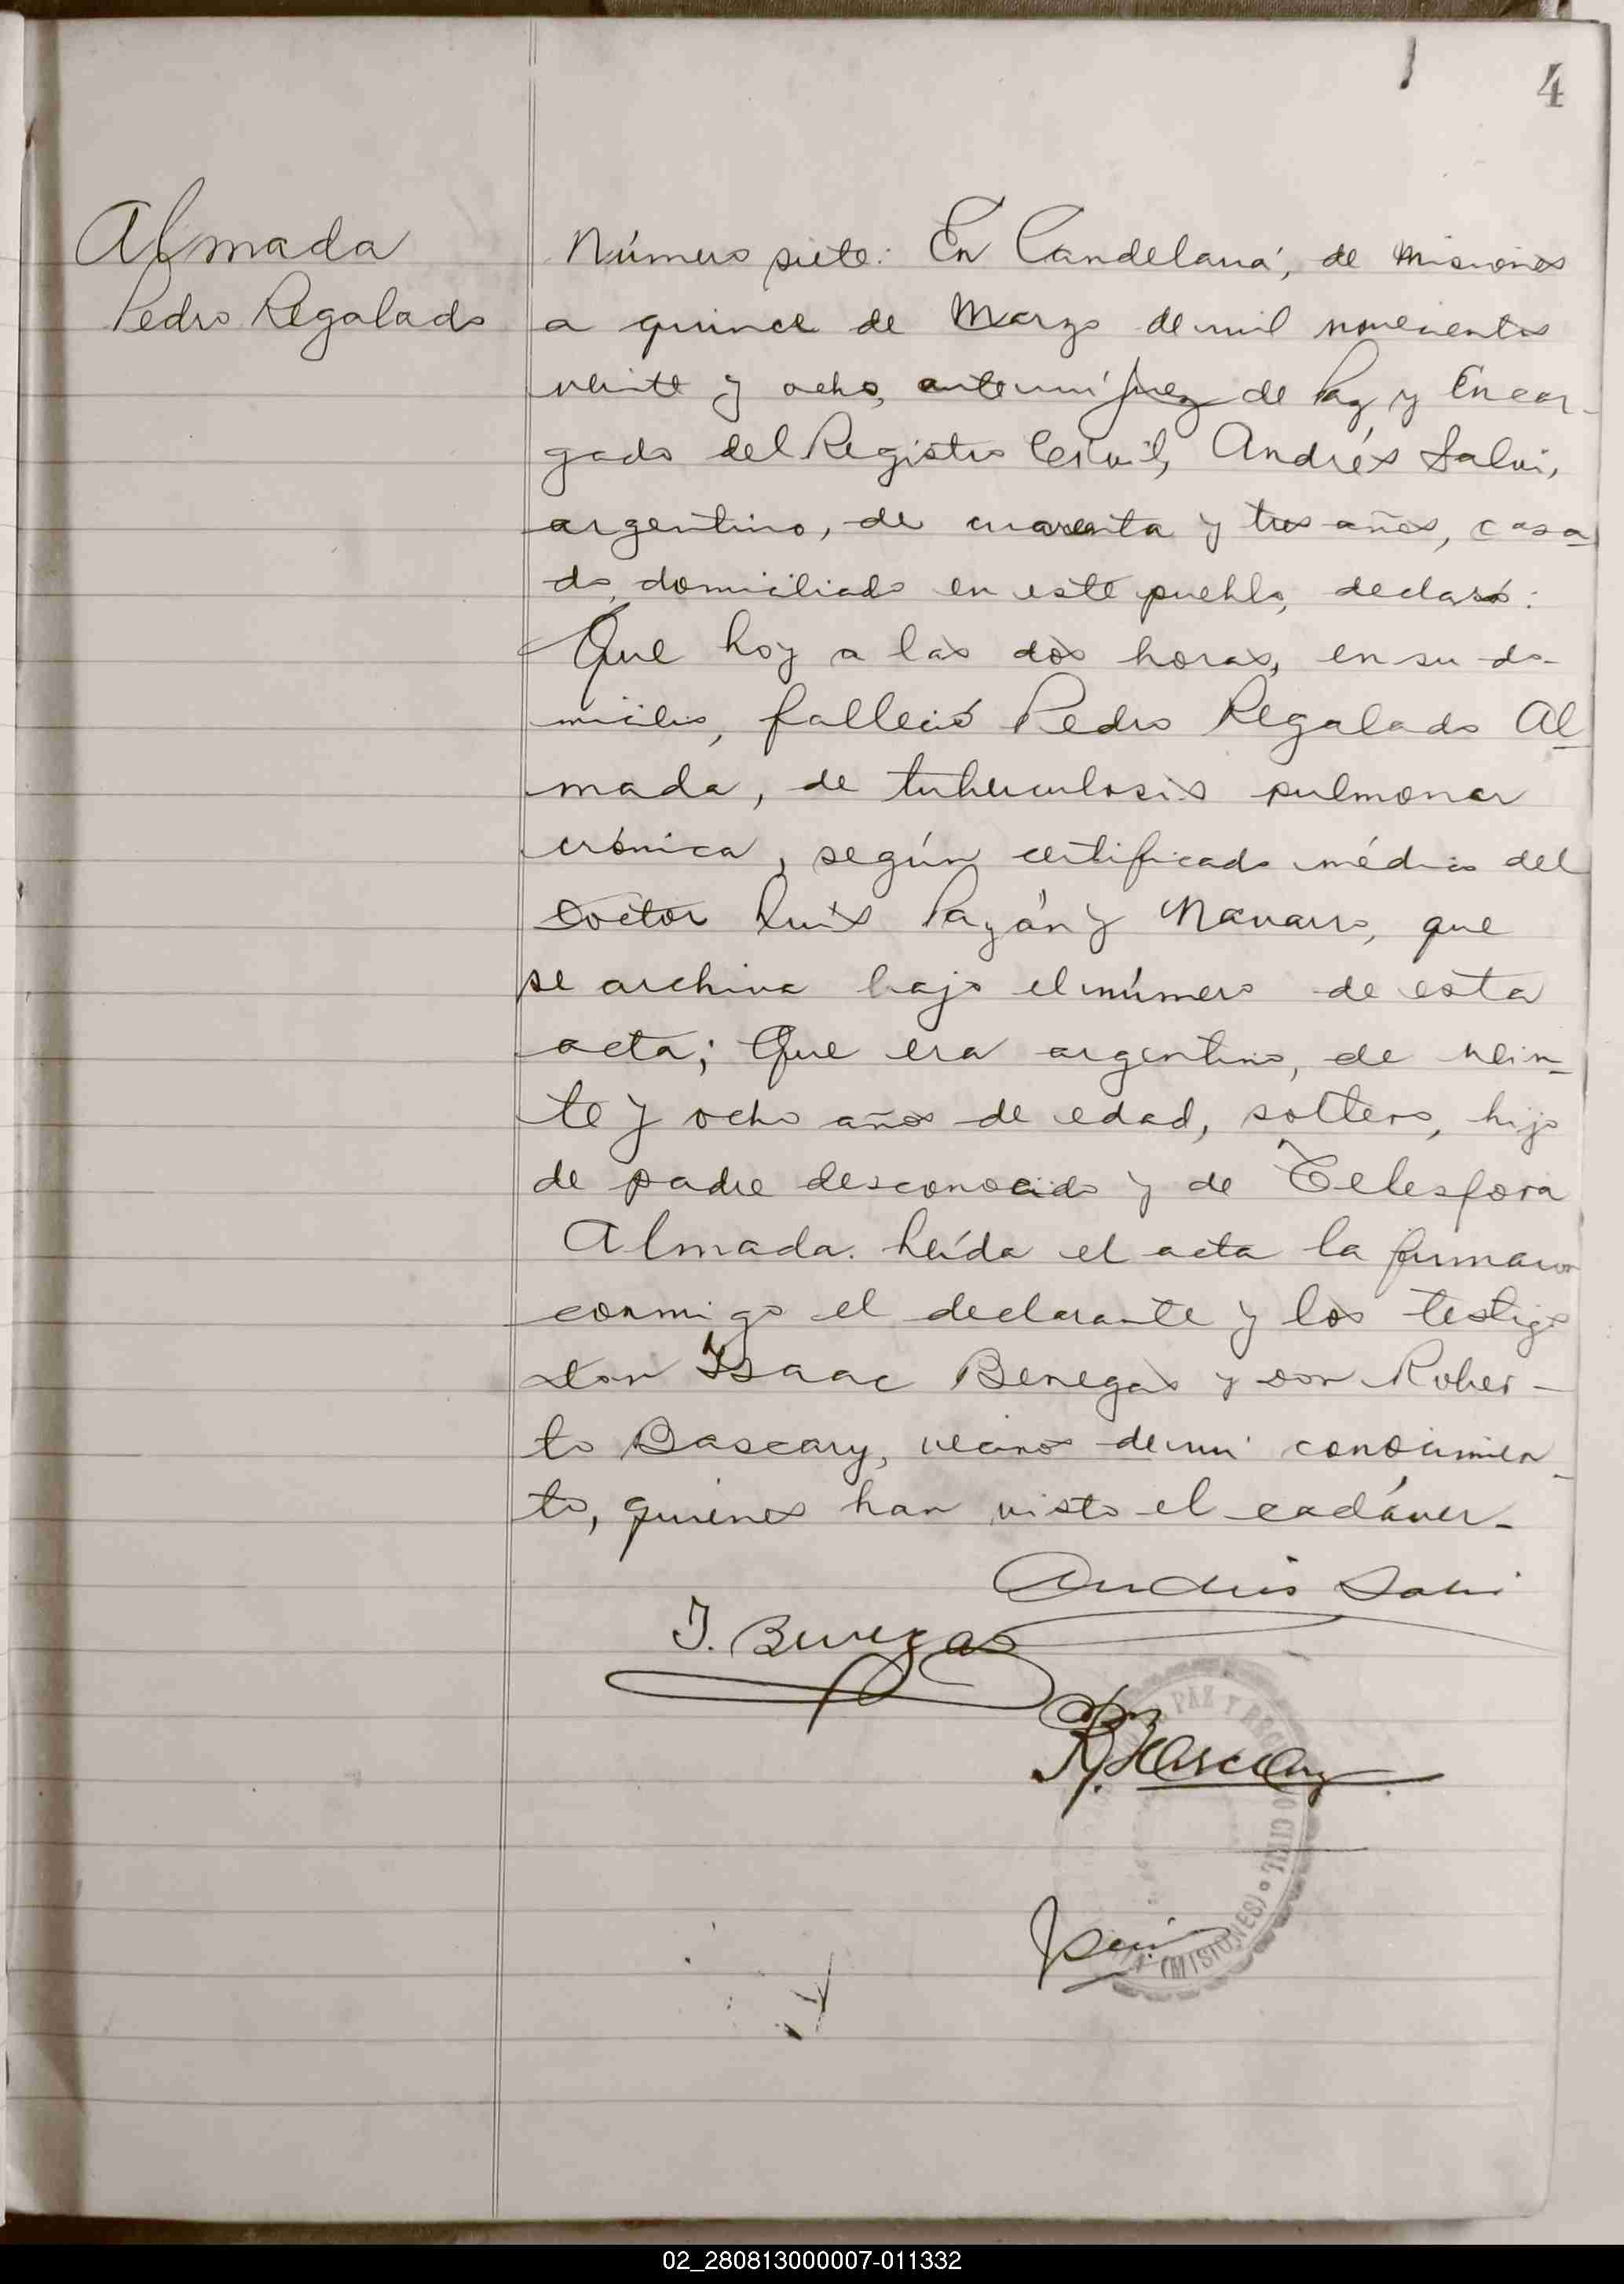 4
Almada
Pedro Regalado
Número siete: En Candelaria, de Misiones
a quince de Marzo de mil novecientos
veinte y ocho, ante mí Juez de Paz y Encar-
gado del Registro Civil, Andrés Salvi,
argentino, de cuarenta y tres años, casa-
do, domiciliado en este pueblo, declaró:
Que hoy a las dos horas, en su do-
micilio, falleció Pedro Regalado Al-
mada, de tuberculosis pulmonar
crónica, según certificado médico del
Doctor Luis Payán y Navarro, que
se archiva bajo el número de esta
acta; Que era argentino, de vein-
te y ocho años de edad, soltero, hijo
de padre desconocido y de Telesfora
Almada. Leída el acta la firmaron
conmigo el declarante y los testigos
don Isaac Benegas y don Rober-
to Bascary, vecinos de mi conocimien-
to, quienes han visto el cadáver-
Andrés Salvi
I. Benegas
R. Bascary
PAZ Y REG
CIVIL
(MISIONES)
02_280813000007-011332